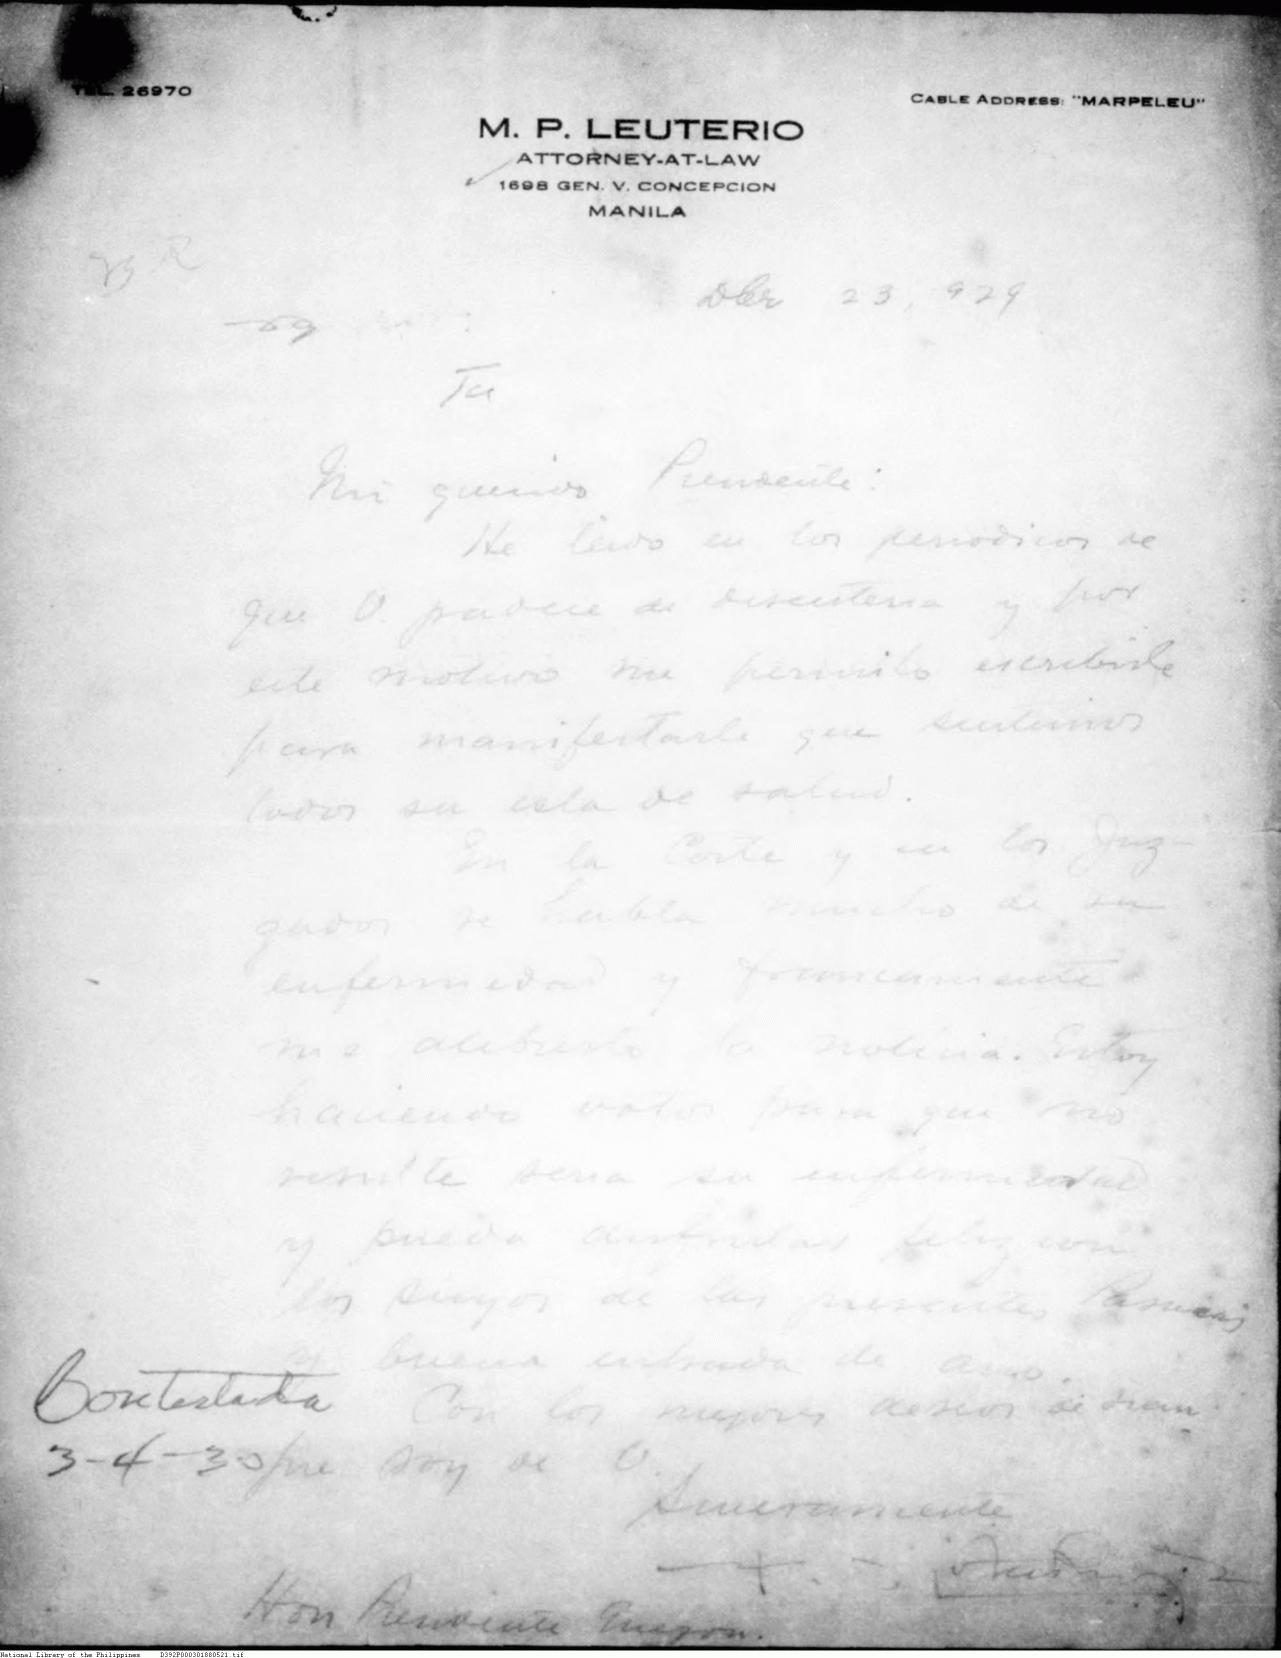 TEL. 26970
CABLE ADDRESS: "MARPELEU"
M. P. LEUTERIO
ATTORNEY-AT-LAW
1698 GEN. V. CONCEPCION
MANILA
Dbr 23, 929
Mi querido Presidente:
He leido en los periodicos de
que V. padece de disenteria y por
este motivo me permito escribirle
para manifestarle que sentimos
todos su esta de salud.
En la Corte y en los Juz-
gados se habla mucho de su
enfermedad y francamente
me alibresto la noticia. Estoy
haciendo votos para que no
resulte seria su enfermedad
y pueda disfrutar feliz con
los suyos de las presentes Pascuas
y buena entrada de ano.
Con los mejores deseos de siem
pre soy de V.
Sinceramente
Contestada
3-4-30
Hon Presidente Quezon.
National Library of the Philippines D392P000301880521.tif